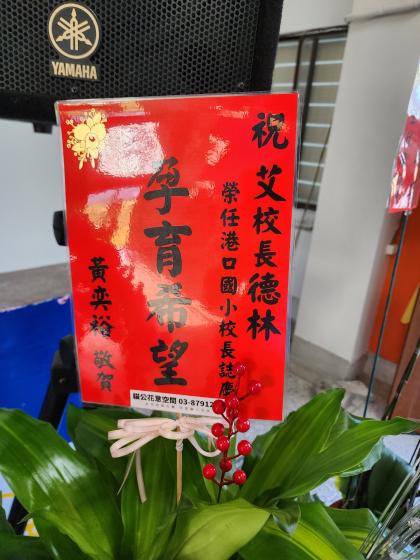 YAMAHA
祝 艾校長德林
榮任港口國小校長誌慶
孕育希望
黃奕裕 敬賀
貓公花意空間 03-87912